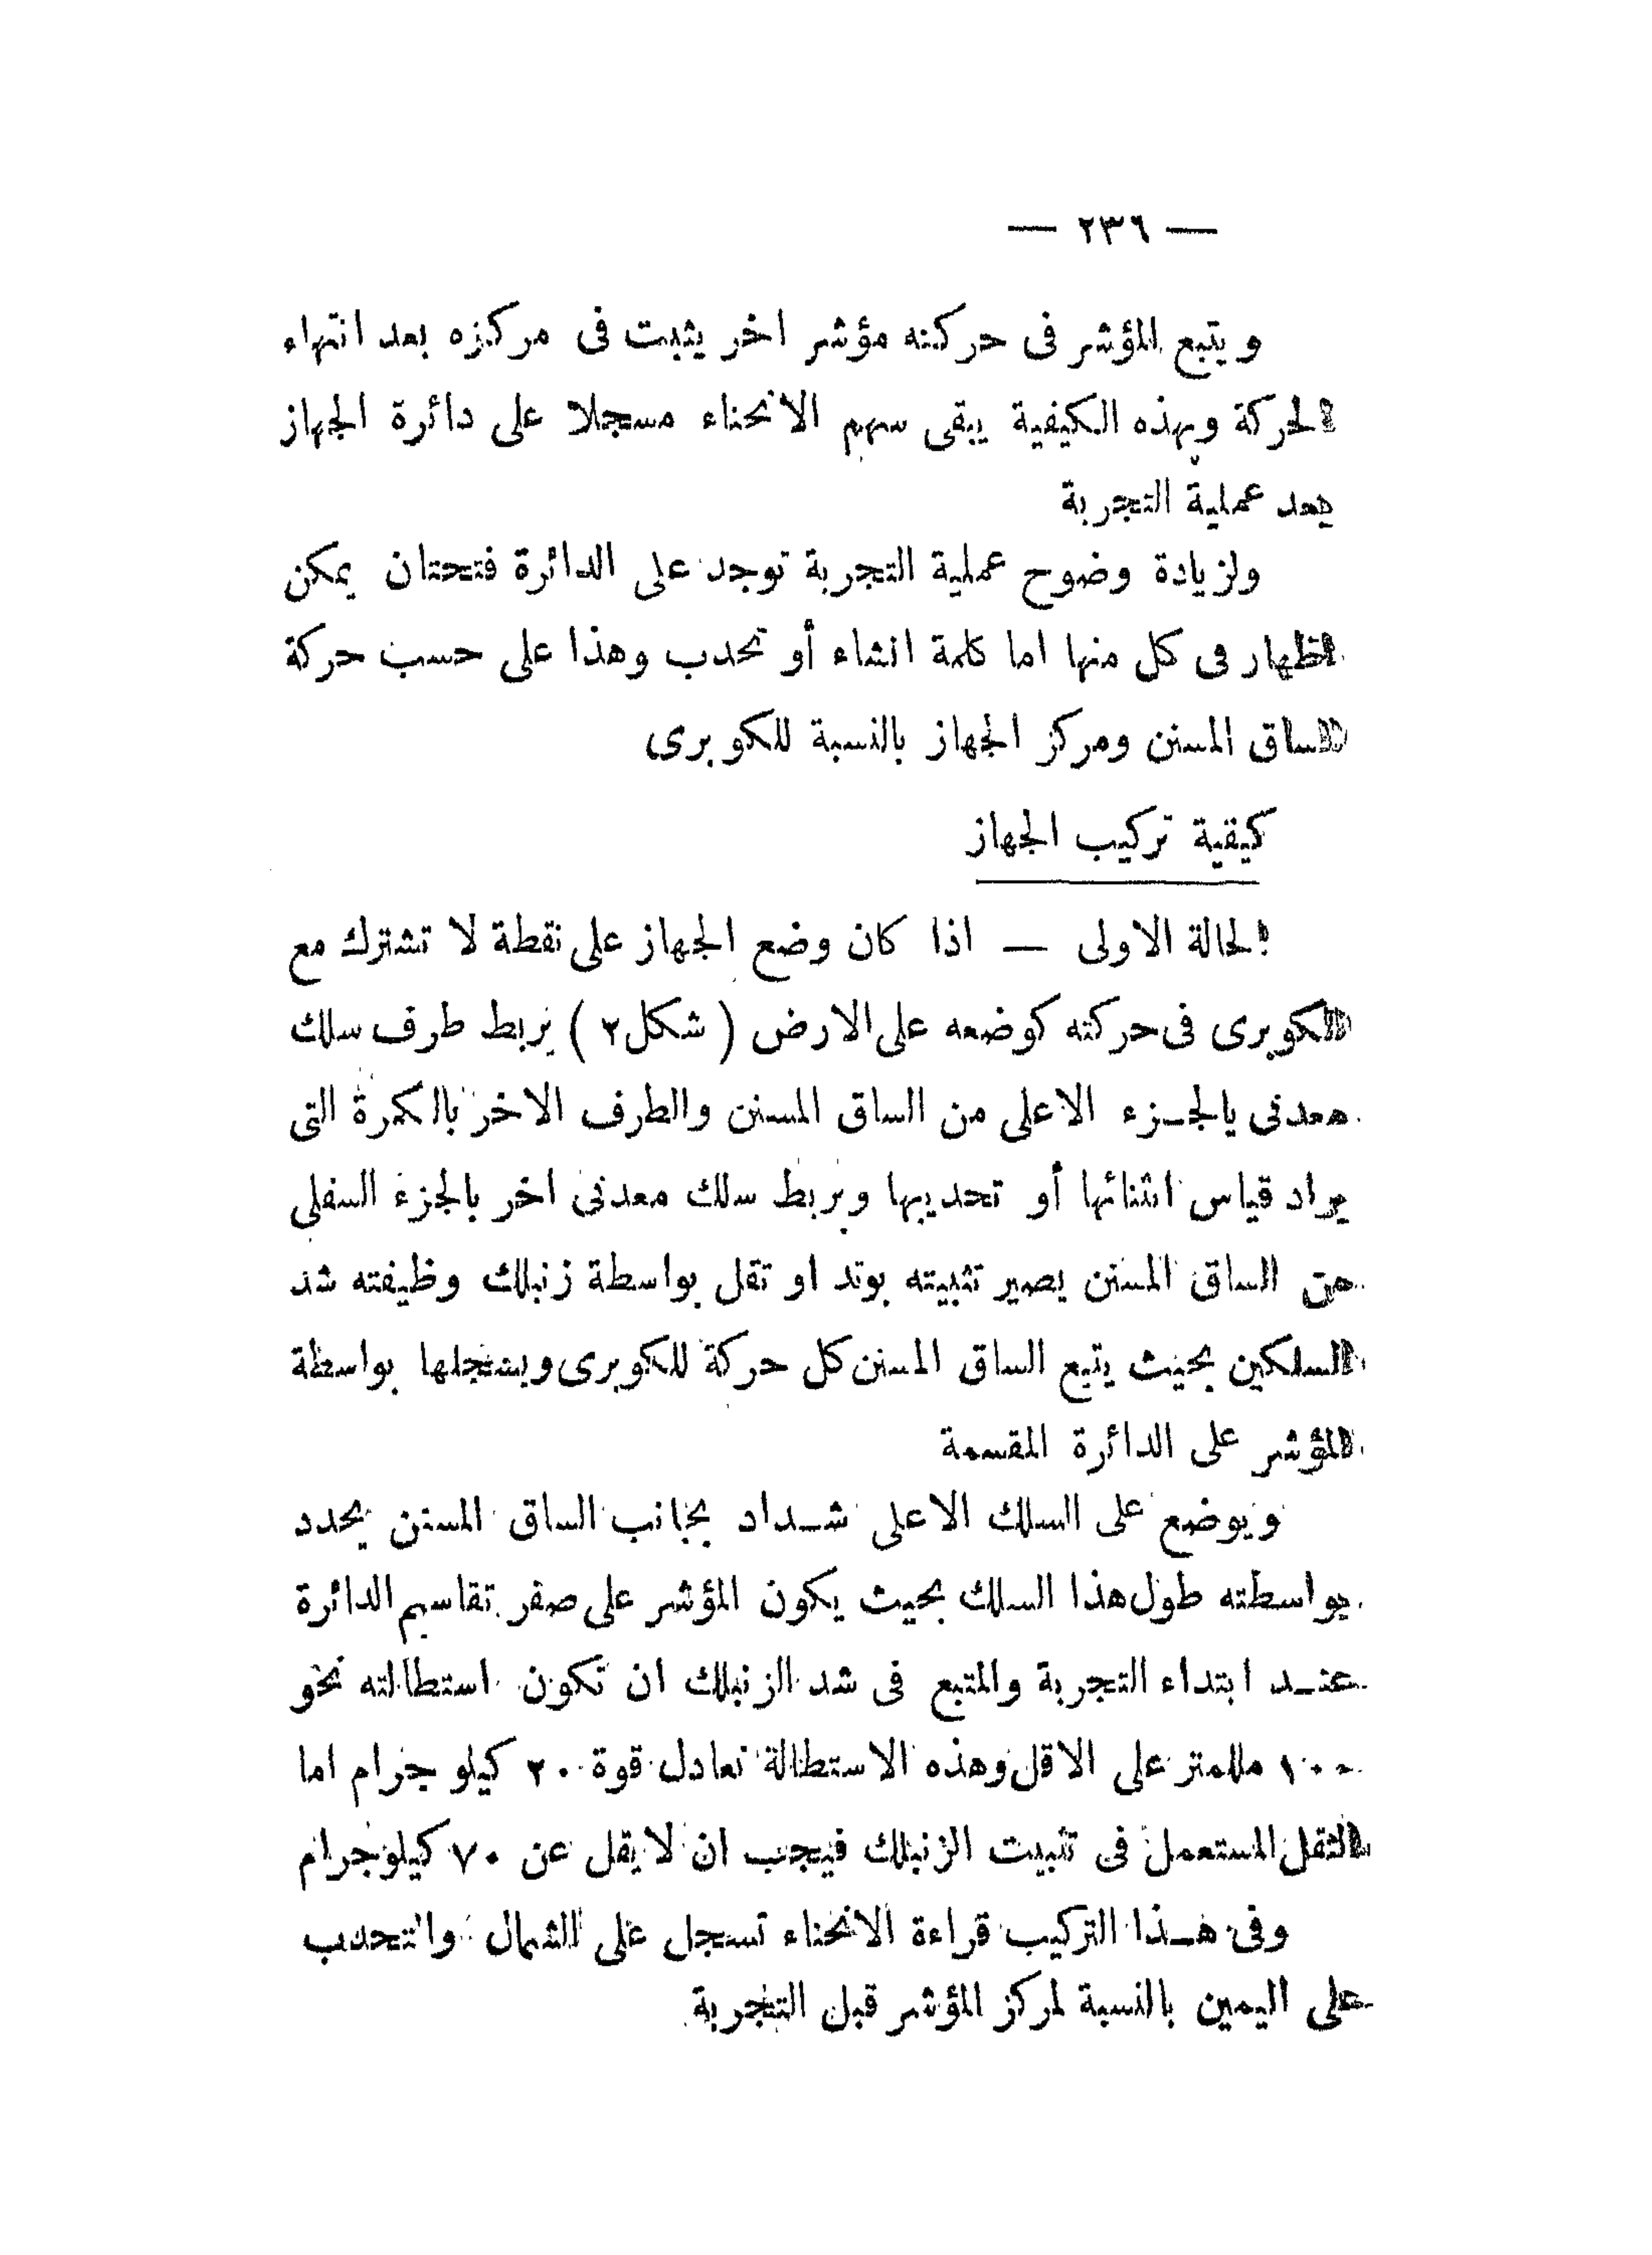 — ٢٣٦ —
ويتبع المؤشر فى حركته مؤشر اخر يثبت فى مركزه بعد انتهاء
الحركة وبهذه الكيفية يبقى سهم الانحناء مسجلا على دائرة الجهاز
بعد عملية التجربة
ولزيادة وضوح عملية التجربة توجد على الدائرة فتحتان يمكن
اظهار فى كل منها اما كلمة انثناء أو تحدب وهذا على حسب حركة
الساق المسنن ومركز الجهاز بالنسبة للكوبرى
كيقية تركيب الجهاز
الحالة الاولى — اذا كان وضع الجهاز على نقطة لا تشترك مع
الكوبرى فى حركته كوضعه على الارض ( شكل ٢ ) يربط طرف سلك
معدنى بالجزء الاعلى من الساق المسنن والطرف الاخر بالكمرة التى
يراد قياس انثنائها أو تحديبها ويربط سلك معدنى اخر بالجزء السفلى
من الساق المسنن يصير تثبيته بوتد او تقل بواسطة زنبلك وظيفته شد
السلكين بحيث يتبع الساق المسنن كل حركة للكوبرى ويسجلها بواسطة
المؤشر على الدائرة المقسمة
ويوضع على السلك الاعلى شداد بجانب الساق المسنن يحدد
بواسطته طول هذا السلك بحيث يكون المؤشر على صفر تقاسيم الدائرة
عند ابتداء التجربة والمتبع فى شد الزنبلك ان تكون استطالته نحو
١٠٠ ملليمتر على الاقل وهذه الاستطالة تعادل قوة ٢٠ كيلو جرام اما
الثقل المستعمل فى تثبيت الزنبلك فيجب ان لا يقل عن ٧٠ كيلوجرام
وفى هذا التركيب قراءة الانحناء تسجل على الشمال والتحدب
على اليمين بالنسبة لمركز المؤشر قبل التجربة